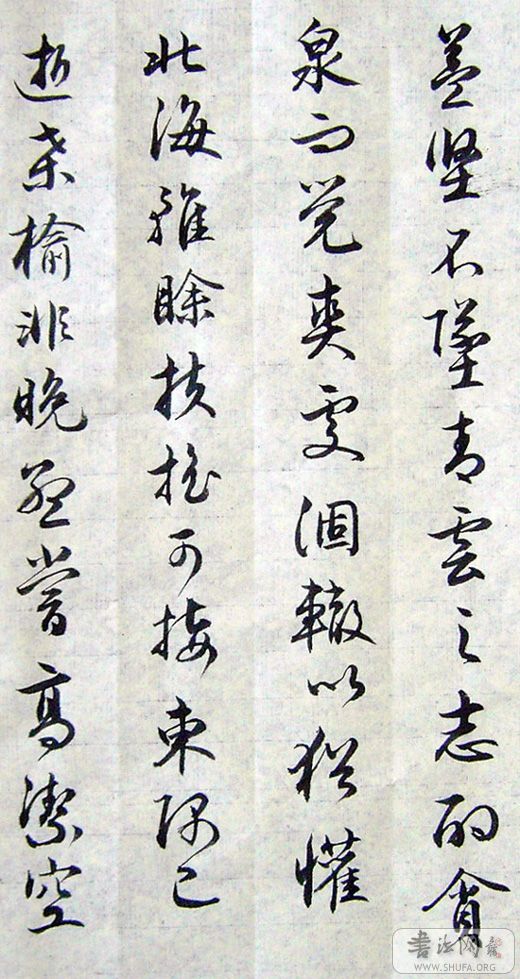 益堅不墜青雲之志酌貪
泉而覺爽處涸轍以猶懽
北海雖賒扶搖可接東隅已
逝桑榆非晚孟嘗高潔空
書法网
WWW.SHUFA.ORG